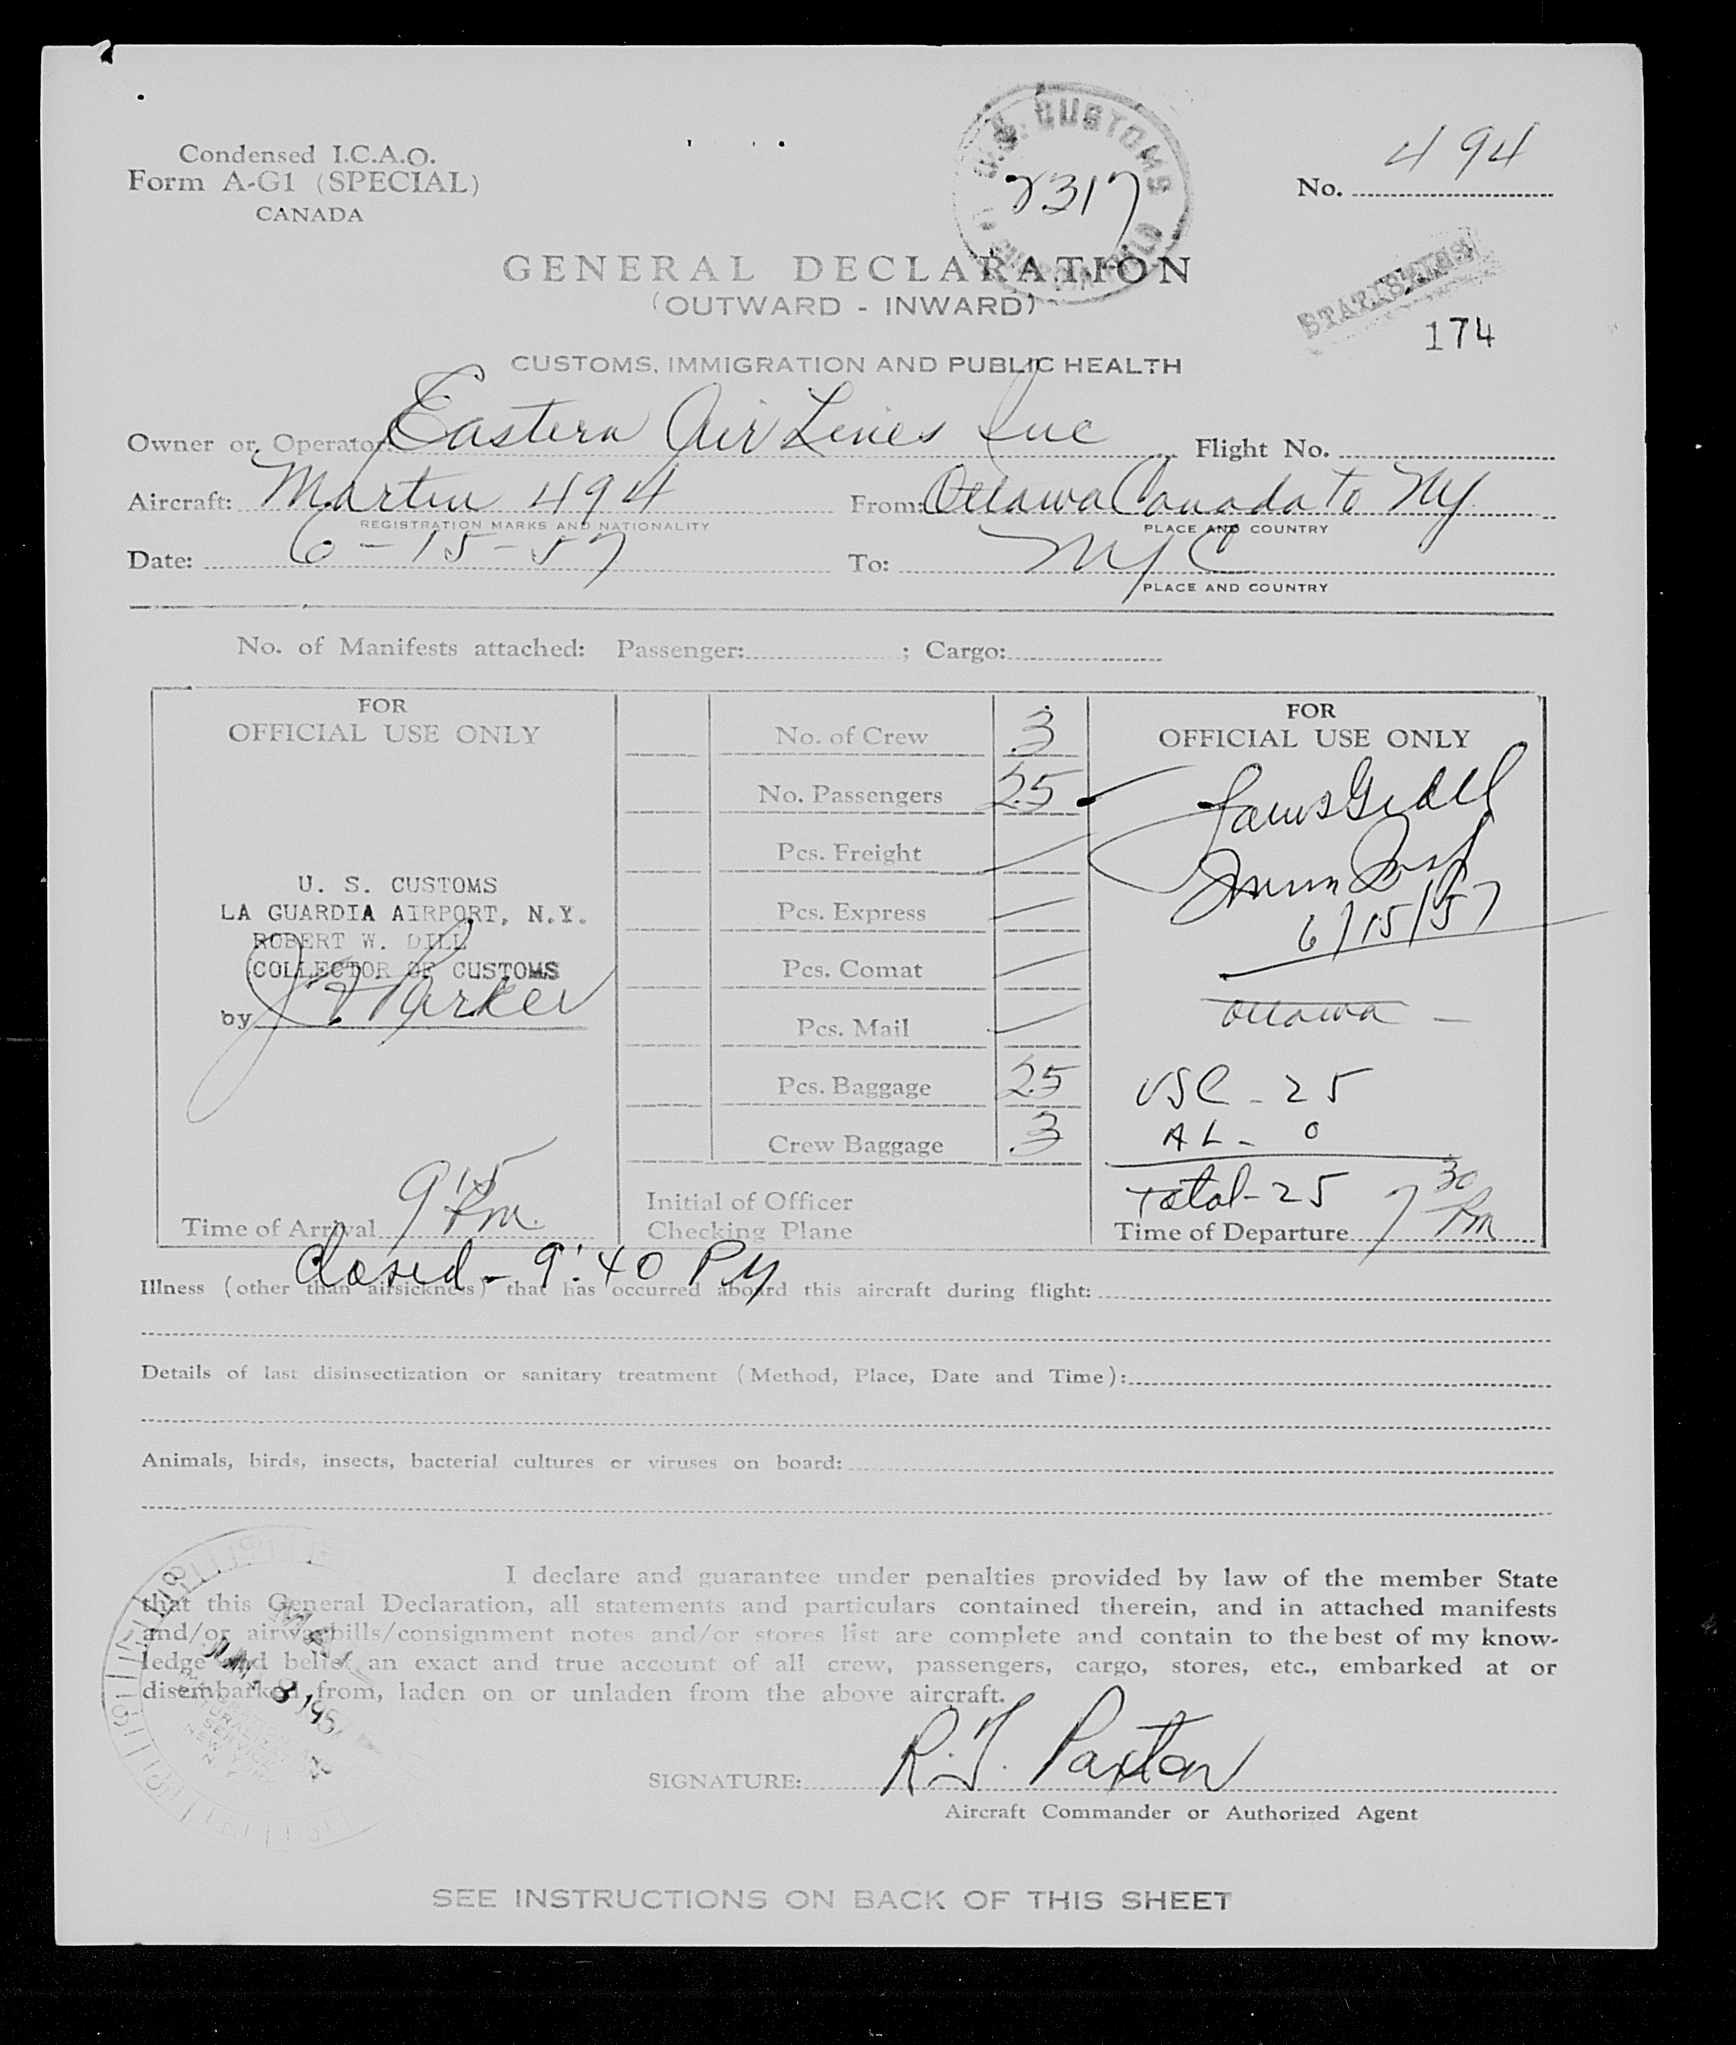 Condensed I.C.A.O.
Form A-G1 (SPECIAL)
CANADA
U.S. CUSTOMS
2317
No. 494
GENERAL DECLARATION
(OUTWARD - INWARD)
STATISTICS
174
CUSTOMS, IMMIGRATION AND PUBLIC HEALTH
Owner or Operator: Eastern Air Lines Inc Flight No.
Aircraft: Martin 494 From: Ottawa Canada to NY
REGISTRATION MARKS AND NATIONALITY PLACE AND COUNTRY
Date: 6-15-57 To: NYC
PLACE AND COUNTRY
No. of Manifests attached: Passenger: ; Cargo:
FOR
OFFICIAL USE ONLY
U. S. CUSTOMS
LA GUARDIA AIRPORT, N.Y.
ROBERT W. DILL
COLLECTOR OF CUSTOMS
by Parker
Time of Arrival 9:15 Pm.
No. of Crew 3
No. Passengers 25
Pcs. Freight
Pcs. Express
Pcs. Comat
Pcs. Mail
Pcs. Baggage 25
Crew Baggage 3
Initial of Officer
Checking Plane
FOR
OFFICIAL USE ONLY
6/15/57
Ottawa -
USC - 25
AL - 0
Total - 25
Time of Departure 7 30 Pm
Closed - 9:40 PM
Illness (other than airsickness) that has occurred aboard this aircraft during flight:
Details of last disinsectization or sanitary treatment (Method, Place, Date and Time):
Animals, birds, insects, bacterial cultures or viruses on board:
I declare and guarantee under penalties provided by law of the member State
that this General Declaration, all statements and particulars contained therein, and in attached manifests
and/or airwaybills/consignment notes and/or stores list are complete and contain to the best of my know-
ledge and belief an exact and true account of all crew, passengers, cargo, stores, etc., embarked at or
disembarked from, laden on or unladen from the above aircraft.
SIGNATURE: R.J. Paxton
Aircraft Commander or Authorized Agent
SEE INSTRUCTIONS ON BACK OF THIS SHEET